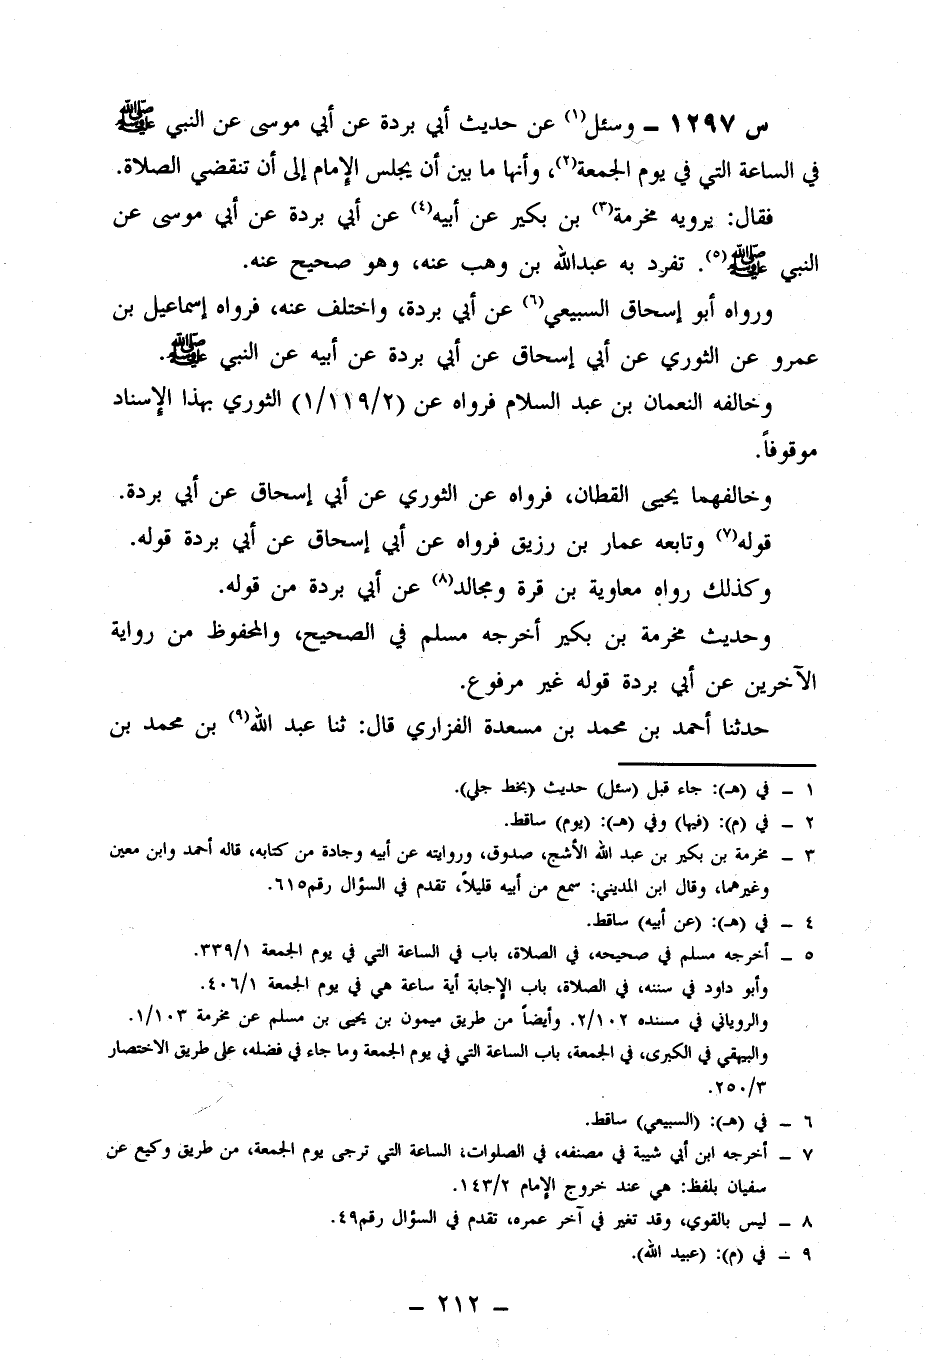 س ١٢٩٧ ـ وسئل(١) عن حديث أبي بردة عن أبي موسى عن النبي ﷺ
في الساعة التي في يوم الجمعة(٢)، وأنها ما بين أن يجلس الإمام إلى أن تنقضي الصلاة.
فقال: يرويه مخرمة(٣) بن بكير عن أبيه(٤) عن أبي بردة عن أبي موسى عن
النبي ﷺ(٥). تفرد به عبدالله بن وهب عنه، وهو صحيح عنه.
ورواه أبو إسحاق السبيعي(٦) عن أبي بردة، واختلف عنه، فرواه إسماعيل بن
عمرو عن الثوري عن أبي إسحاق عن أبي بردة عن أبيه عن النبي ﷺ.
وخالفه النعمان بن عبد السلام فرواه عن (١/١١٩/٢) الثوري بهذا الإسناد
موقوفاً.
وخالفهما يحيى القطان، فرواه عن الثوري عن أبي إسحاق عن أبي بردة.
قوله(٧) وتابعه عمار بن رزيق فرواه عن أبي إسحاق عن أبي بردة قوله.
وكذلك رواه معاوية بن قرة ومجالد(٨) عن أبي بردة من قوله.
وحديث مخرمة بن بكير أخرجه مسلم في الصحيح، والمحفوظ من رواية
الآخرين عن أبي بردة قوله غير مرفوع.
حدثنا أحمد بن محمد بن مسعدة الفزاري قال: ثنا عبد الله(٩) بن محمد بن
١ ـ في (هـ): جاء قبل (سئل) حديث (بخط جلي).
٢ ـ في (م): (فيها) وفي (هـ): (يوم) ساقط.
٣ ـ مخرمة بن بكير بن عبد الله الأشج، صدوق، وروايته عن أبيه وجادة من كتابه، قاله أحمد وابن معين
وغيرهما، وقال ابن المديني: سمع من أبيه قليلاً، تقدم في السؤال رقم٦١٥.
٤ ـ في (هـ): (عن أبيه) ساقط.
٥ ـ أخرجه مسلم في صحيحه، في الصلاة، باب في الساعة التي في يوم الجمعة ٣٣٩/١.
وأبو داود في سننه، في الصلاة، باب الإجابة أية ساعة هي في يوم الجمعة ٤٠٦/١.
والروياني في مسنده ٢/١٠٢. وأيضاً من طريق ميمون بن يحيى بن مسلم عن مخرمة ١/١٠٣.
والبيهقي في الكبرى، في الجمعة، باب الساعة التي في يوم الجمعة وما جاء في فضله، على طريق الاختصار
٢٥٠/٣.
٦ ـ في (هـ): (السبيعي) ساقط.
٧ ـ أخرجه ابن أبي شيبة في مصنفه، في الصلوات، الساعة التي ترجى يوم الجمعة، من طريق وكيع عن
سفيان بلفظ: هي عند خروج الإمام ١٤٣/٢.
٨ ـ ليس بالقوي، وقد تغير في آخر عمره، تقدم في السؤال رقم٤٩.
٩ ـ في (م): (عبيد الله).
ـ ٢١٢ ـ